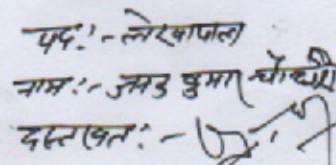 पद :- लेखापाल
नाम :- कुमार चौधरी
दस्तखत :-